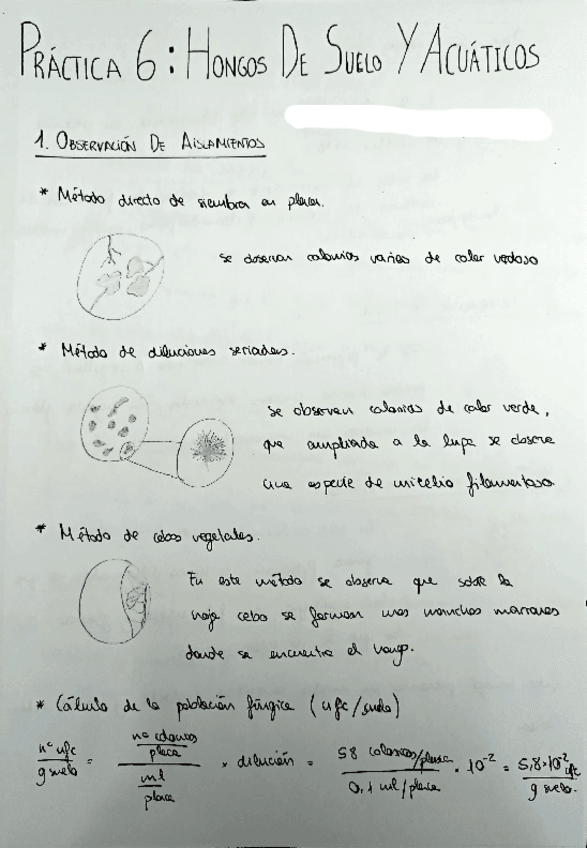 PRÁCTICA 6: HONGOS DE SUELO Y ACUÁTICOS
1. OBSERVACIÓN DE AISLAMIENTOS
* Método directo de siembra en placa.
Se observan colonias varias de color verdoso
* Método de diluciones seriadas.
Se observan colonias de color verde,
que ampliada a la lupa se observa
una especie de micelio filamentoso
* Método de cebos vegetales.
En este método se observa que sobre la
hoja cebo se forman unas manchas marrones
donde se encuentra el hongo.
* Cálculo de la población fúngica (ufc/suelo)
nº ufc / g suelo = (nº colonias/placa) / (ml/placa) × dilución = 58 colonias/placa / 0,1 ml/placa · 10⁻² = 5,8·10⁻² ufc / g suelo.